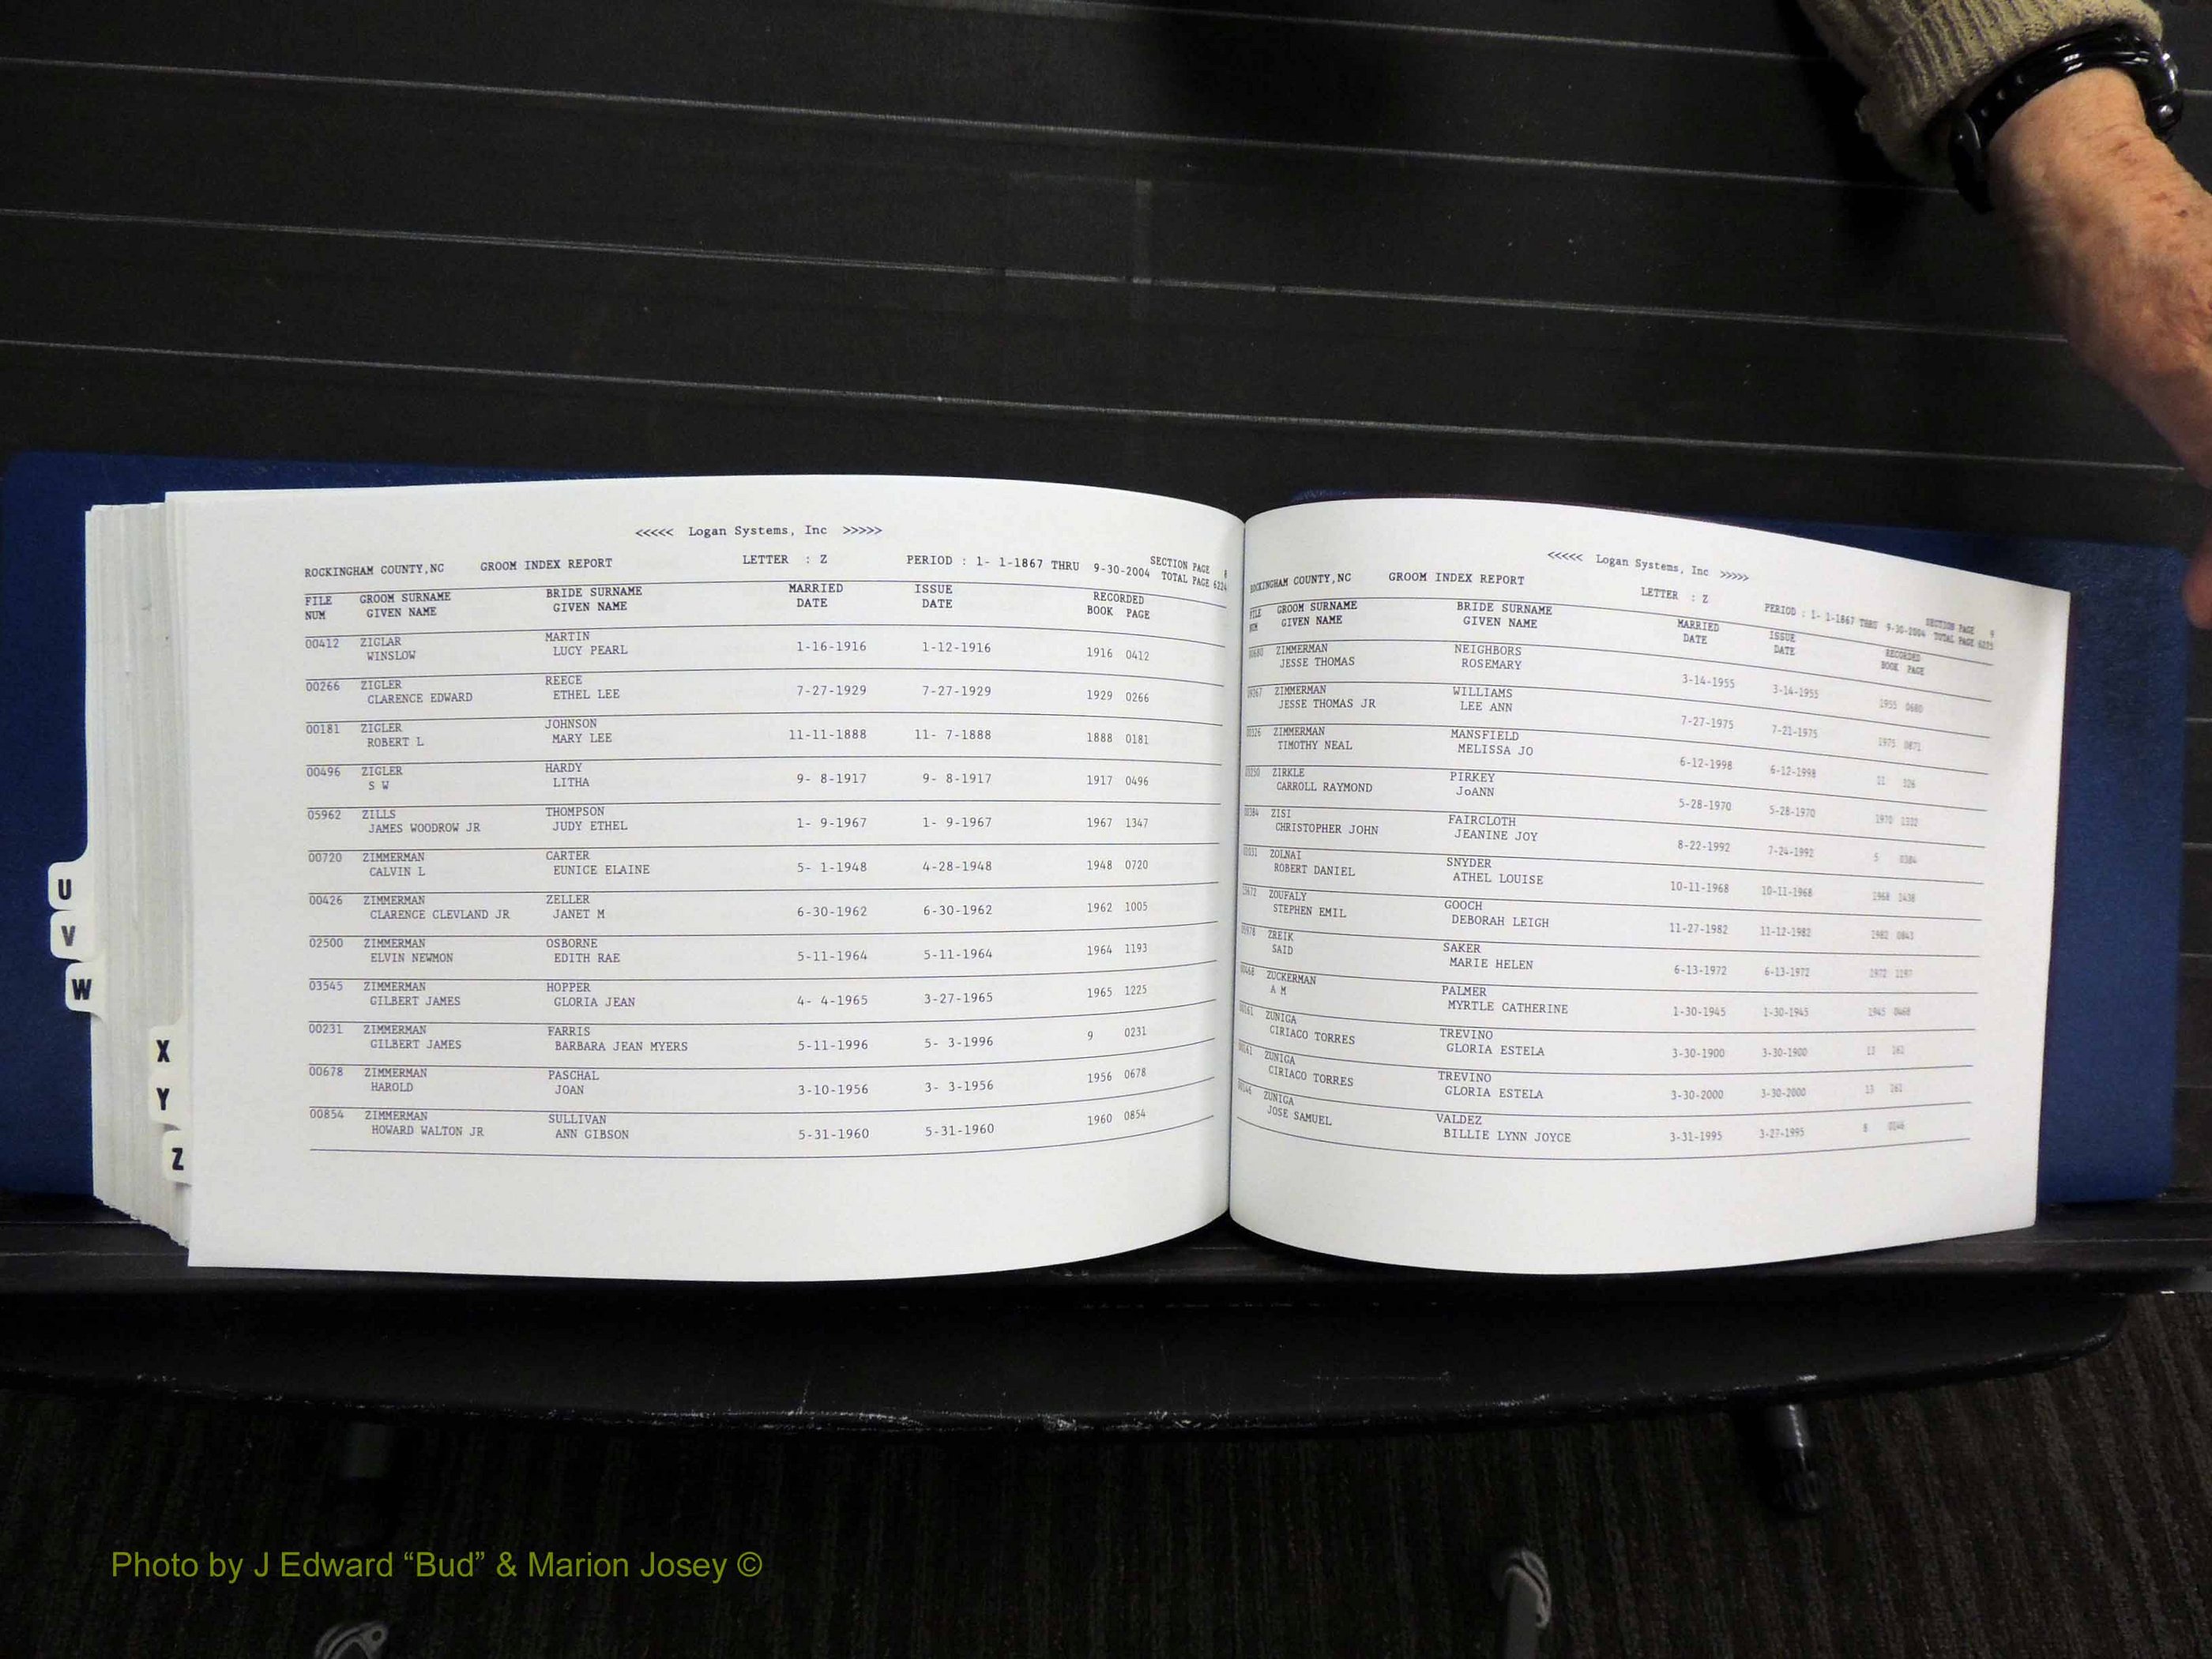 <<<<< Logan Systems, Inc >>>>>
ROCKINGHAM COUNTY,NC GROOM INDEX REPORT LETTER : Z PERIOD : 1- 1-1867 THRU 9-30-2004 SECTION PAGE 8
TOTAL PAGE 6224
FILE GROOM SURNAME BRIDE SURNAME MARRIED ISSUE RECORDED
NUM GIVEN NAME GIVEN NAME DATE DATE BOOK PAGE
00412 ZIGLAR MARTIN
WINSLOW LUCY PEARL 1-16-1916 1-12-1916 1916 0412
00266 ZIGLER REECE
CLARENCE EDWARD ETHEL LEE 7-27-1929 7-27-1929 1929 0266
00181 ZIGLER JOHNSON
ROBERT L MARY LEE 11-11-1888 11- 7-1888 1888 0181
00496 ZIGLER HARDY
S W LITHA 9- 8-1917 9- 8-1917 1917 0496
05962 ZILLS THOMPSON
JAMES WOODROW JR JUDY ETHEL 1- 9-1967 1- 9-1967 1967 1347
00720 ZIMMERMAN CARTER
CALVIN L EUNICE ELAINE 5- 1-1948 4-28-1948 1948 0720
00426 ZIMMERMAN ZELLER
CLARENCE CLEVLAND JR JANET M 6-30-1962 6-30-1962 1962 1005
02500 ZIMMERMAN OSBORNE
ELVIN NEWMON EDITH RAE 5-11-1964 5-11-1964 1964 1193
03545 ZIMMERMAN HOPPER
GILBERT JAMES GLORIA JEAN 4- 4-1965 3-27-1965 1965 1225
00231 ZIMMERMAN FARRIS
GILBERT JAMES BARBARA JEAN MYERS 5-11-1996 5- 3-1996 9 0231
00678 ZIMMERMAN PASCHAL
HAROLD JOAN 3-10-1956 3- 3-1956 1956 0678
00854 ZIMMERMAN SULLIVAN
HOWARD WALTON JR ANN GIBSON 5-31-1960 5-31-1960 1960 0854
U
V
W
X
Y
Z
<<<<< Logan Systems, Inc >>>>>
ROCKINGHAM COUNTY,NC GROOM INDEX REPORT LETTER : Z PERIOD : 1- 1-1867 THRU 9-30-2004 SECTION PAGE 9
TOTAL PAGE 6225
FILE GROOM SURNAME BRIDE SURNAME MARRIED ISSUE RECORDED
NUM GIVEN NAME GIVEN NAME DATE DATE BOOK PAGE
00680 ZIMMERMAN NEIGHBORS
JESSE THOMAS ROSEMARY 3-14-1955 3-14-1955 1955 0680
ZIMMERMAN WILLIAMS
JESSE THOMAS JR LEE ANN 7-27-1975 7-21-1975 1975 0871
00326 ZIMMERMAN MANSFIELD
TIMOTHY NEAL MELISSA JO 6-12-1998 6-12-1998 11 326
ZIRKLE PIRKEY
CARROLL RAYMOND JoANN 5-28-1970 5-28-1970 1970
00384 ZISI FAIRCLOTH
CHRISTOPHER JOHN JEANINE JOY 8-22-1992 7-24-1992 5 0384
ZOLNAI SNYDER
ROBERT DANIEL ATHEL LOUISE 10-11-1968 10-11-1968 1968 1438
ZOUFALY GOOCH
STEPHEN EMIL DEBORAH LEIGH 11-27-1982 11-12-1982 1982 0843
ZREIK SAKER
SAID MARIE HELEN 6-13-1972 6-13-1972 1972 1197
00468 ZUCKERMAN PALMER
A M MYRTLE CATHERINE 1-30-1945 1-30-1945 1945 0468
00161 ZUNIGA TREVINO
CIRIACO TORRES GLORIA ESTELA 3-30-1900 3-30-1900 13 161
00161 ZUNIGA TREVINO
CIRIACO TORRES GLORIA ESTELA 3-30-2000 3-30-2000 13 161
ZUNIGA VALDEZ
JOSE SAMUEL BILLIE LYNN JOYCE 3-31-1995 3-27-1995 8
Photo by J Edward “Bud” & Marion Josey ©